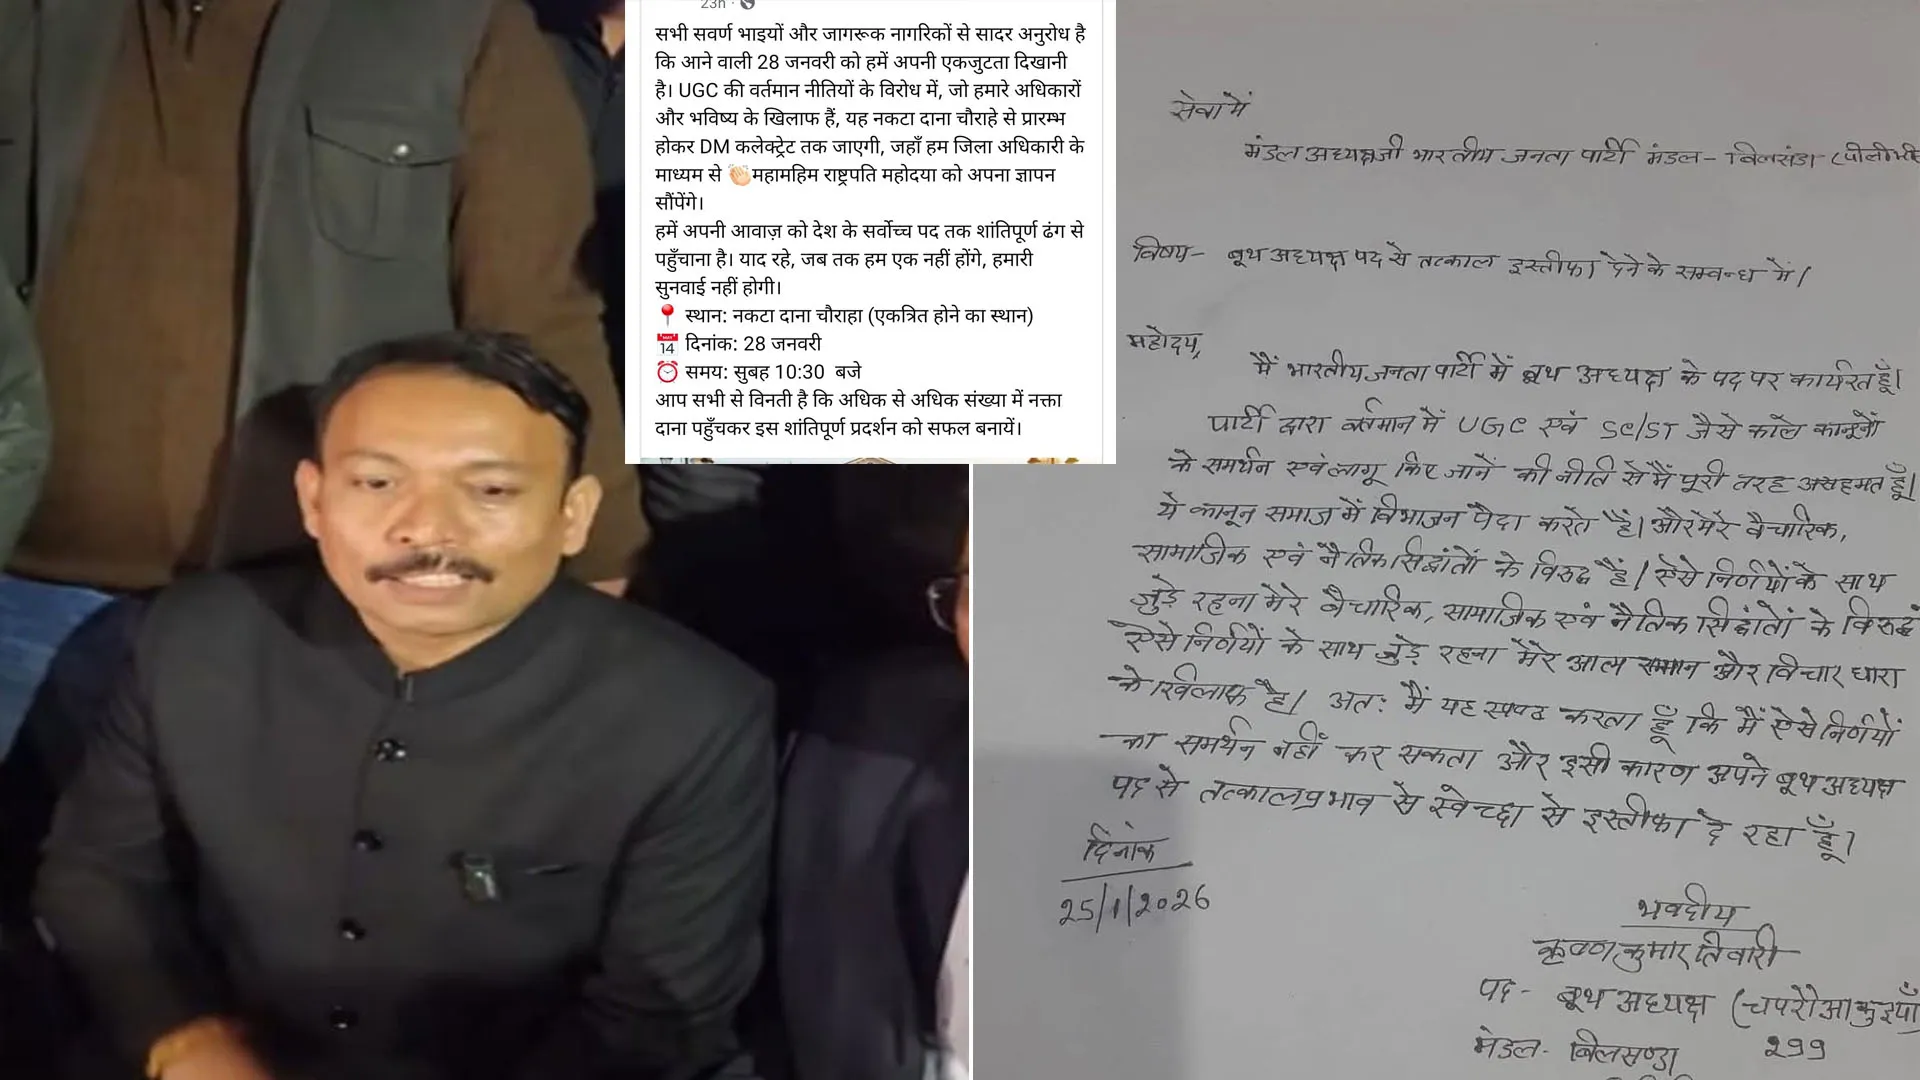 23h
सभी सवर्ण भाइयों और जागरूक नागरिकों से सादर अनुरोध है
कि आने वाली 28 जनवरी को हमें अपनी एकजुटता दिखानी
है। UGC की वर्तमान नीतियों के विरोध में, जो हमारे अधिकारों
और भविष्य के खिलाफ हैं, यह नकटा दाना चौराहे से प्रारम्भ
होकर DM कलेक्ट्रेट तक जाएगी, जहाँ हम जिला अधिकारी के
माध्यम से 👏🏻महामहिम राष्ट्रपति महोदया को अपना ज्ञापन
सौंपेंगे।
हमें अपनी आवाज़ को देश के सर्वोच्च पद तक शांतिपूर्ण ढंग से
पहुँचाना है। याद रहे, जब तक हम एक नहीं होंगे, हमारी
सुनवाई नहीं होगी।
📍 स्थान: नकटा दाना चौराहा (एकत्रित होने का स्थान)
📅 दिनांक: 28 जनवरी
⏰ समय: सुबह 10:30 बजे
आप सभी से विनती है कि अधिक से अधिक संख्या में नक्ता
दाना पहुँचकर इस शांतिपूर्ण प्रदर्शन को सफल बनायें।
सेवा में
मंडल अध्यक्ष जी भारतीय जनता पार्टी मंडल - बिलसंडा (पीलीभी
विषय- बूथ अध्यक्ष पद से तत्काल इस्तीफा देने के सम्बन्ध में।
महोदय,
मैं भारतीय जनता पार्टी में बूथ अध्यक्ष के पद पर कार्यरत हूँ।
पार्टी द्वारा वर्तमान में UGC एवं SC/ST जैसे काले कानूनों
के समर्थन एवं लागू किए जानें की नीति से मैं पूरी तरह असहमत हूँ।
ये कानून समाज में विभाजन पैदा करते हैं। और मेरे वैचारिक,
सामाजिक एवं नैतिक सिद्धांतों के विरुद्ध हैं। ऐसे निर्णयों के साथ
जुड़े रहना मेरे वैचारिक, सामाजिक एवं नैतिक सिद्धांतों के विरुद्ध
ऐसे निर्णयों के साथ जुड़े रहना मेरे आत्म सम्मान और विचार धारा
के खिलाफ है। अतः मैं यह स्पष्ट करता हूँ कि मैं ऐसे निर्णयों
का समर्थन नहीं कर सकता और इसी कारण अपने बूथ अध्यक्ष
पद से तत्काल प्रभाव से स्वेच्छा से इस्तीफा दे रहा हूँ।
दिनांक
25/1/2026
भवदीय
कृष्ण कुमार तिवारी
पद - बूथ अध्यक्ष (चपरौआ कुइयाँ)
मंडल - बिलसण्डा 299